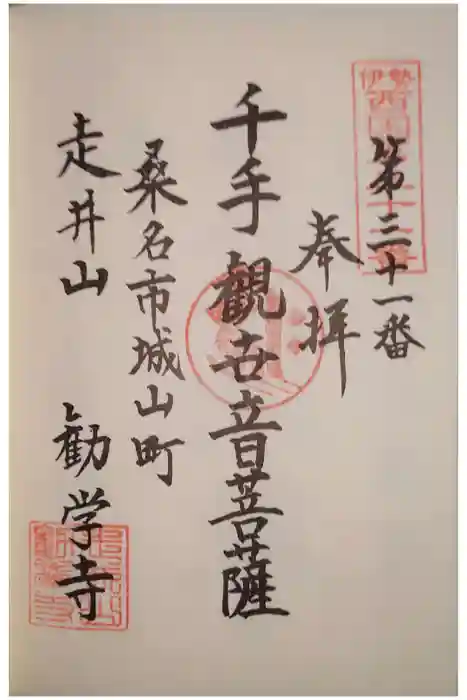 第三十一番
奉拝
千手觀世音菩薩
桑名市城山町
走井山 勧学寺